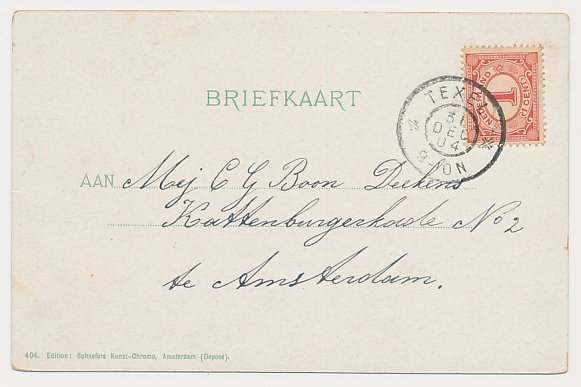 BRIEFKAART
TEXEL
31
DEC
04
8-9N
NEDERLAND
1
1 CENT
AAN Mej C G Boon Deekens
Kattenburgerkade No 2
te Amsterdam.
404. Edition: Schaefers Kunst-Chromo, Amsterdam (Deposé).